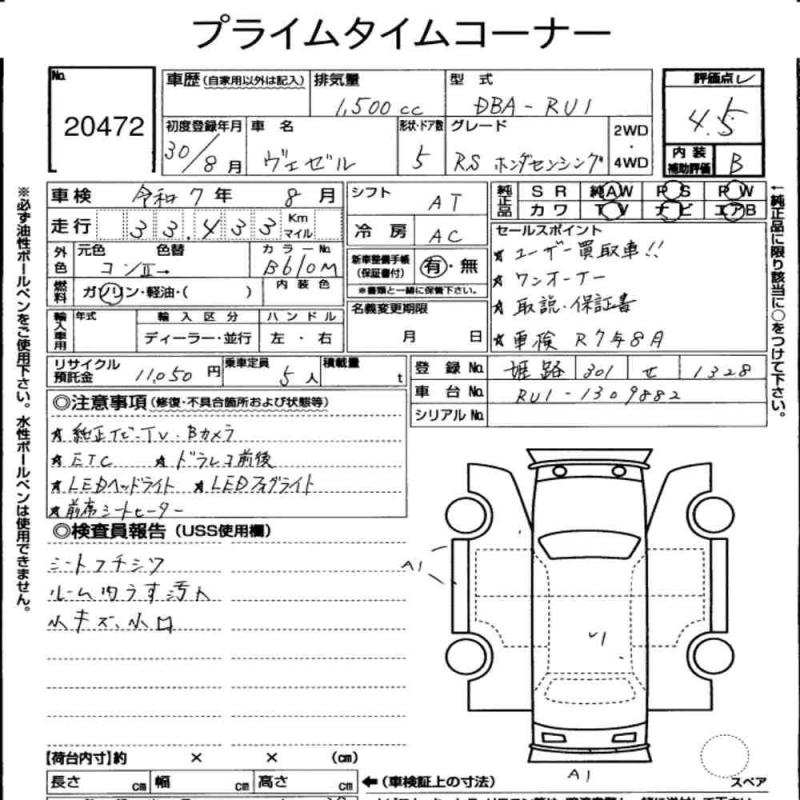 プライムタイムコーナー
No.
20472
車歴(自家用以外は記入)
排気量
1,500cc
型式
DBA-RU1
評価点
4.5
初度登録年月
30/8月
車名
ヴェゼル
形状・ドア数
5
グレード
RS ホンダセンシング
2WD・4WD
内装補助評価
B
車検
令和7年 8月
シフト
AT
純正品
SR 純AW PS PW
カワ TV ナビ エアB
走行
33,433
Km
マイル
冷房
AC
セールスポイント
★ユーザー買取車!!
★ワンオーナー
★取説・保証書
★車検 R7年8月
外色
元色 色替
カラーNo.
B610M
新車整備手帳(保証書付)
有・無
※書類と一緒に保管下さい。
燃料
ガソリン・軽油・( )
内装色
名義変更期限
月 日
輸入車用
年式
輸入区分
ディーラー・並行
ハンドル
左・右
リサイクル預託金
11,050円
乗車定員
5人
積載量
t
登録No.
姫路 301 せ 1328
車台No.
RU1-1309882
シリアルNo.
◎注意事項(修復・不具合箇所および状態等)
★純正ナビ・TV・Bカメラ
★ETC ★ドラレコ前後
★LEDヘッドライト ★LEDフォグライト
★前席シートヒーター
◎検査員報告(USS使用欄)
シートフチシワ
ルーム内うす汚れ
小キズ、小凹
A1
A1
【荷台内寸】約 × × (cm)
長さ cm 幅 cm 高さ cm
←(車検証上の寸法)
スペア
※必ず油性ボールペンをご使用下さい。水性ボールペンは使用できません。
←純正品に限り該当に○をつけて下さい。